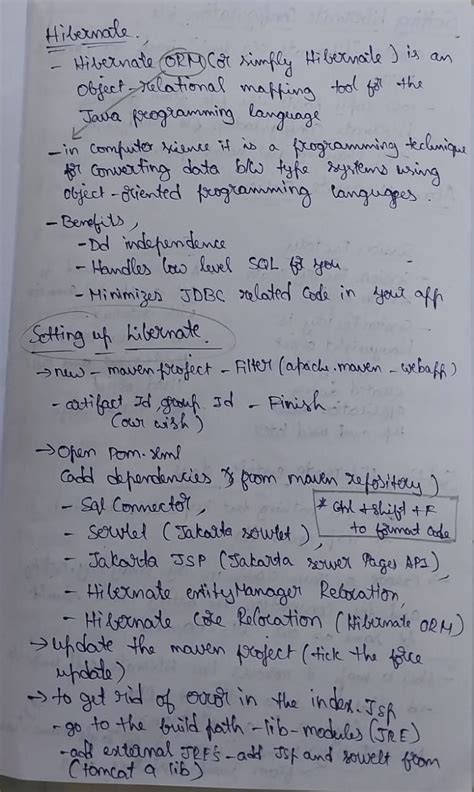 Hibernate.,
- Hibernate ORM (or simply Hibernate) is an
Object-relational mapping tool for the
Java programming language
- in computer science it is a programming technique
for converting data b/w type systems using
object-oriented programming languages.
- Benefits,
- Dd independence
- Handles low level SQL for you
- Minimizes JDBC related code in your app
Setting up hibernate.
→ new - maven project - Filter (apache.maven - webapp)
- artifact Id, group Id - Finish
(our wish)
→ Open Pom.xml
(add dependencies from maven repository)
* Ctrl + Shift + F
to format code
- Sql Connector,
- Servlet (Jakarta servlet),
- Jakarta JSP (Jakarta server Pages API),
- Hibernate entityManager Relocation,
- Hibernate Core Relocation (Hibernate ORM)
→ update the maven project (tick the force
update)
→ to get rid of error in the index.Jsp
- go to the build path - lib - modules (JRE)
- add external JRE's - add Jsp and servlet from
(tomcat 9 lib)